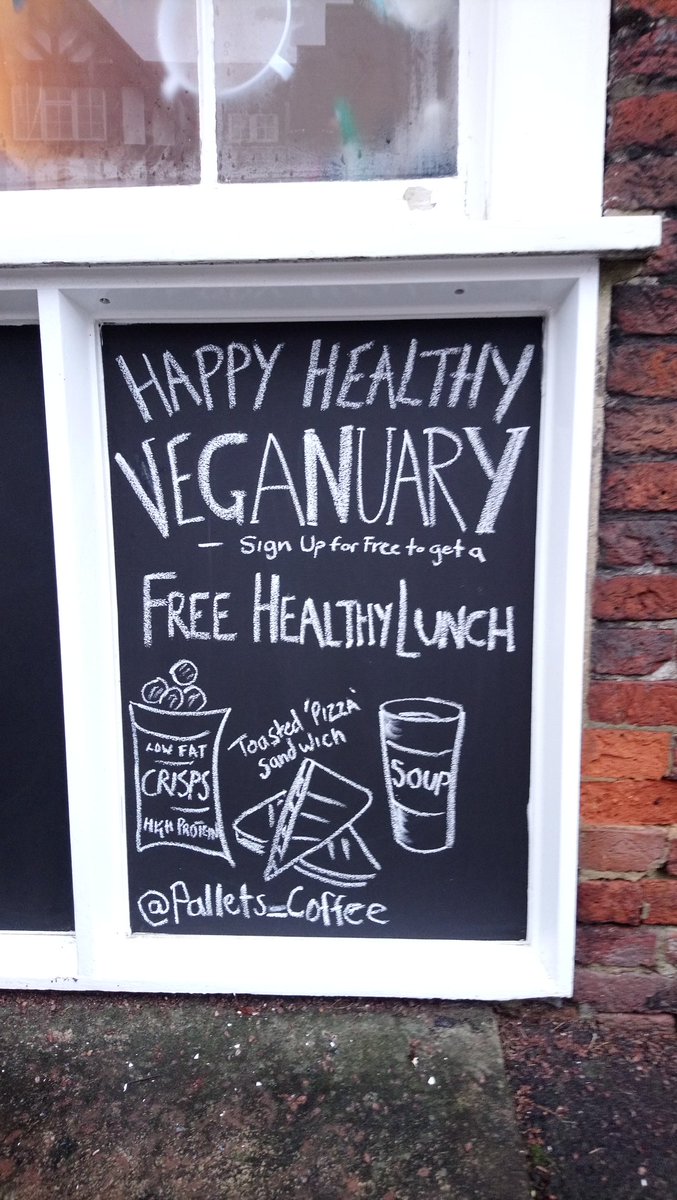 HAPPY HEALTHY
VEGANUARY
- Sign Up for Free to get a
FREE HEALTHY LUNCH
LOW FAT
CRISPS
HIGH PROTEIN
Toasted 'PIZZA'
sandwich
SOUP
@Pallets_Coffee